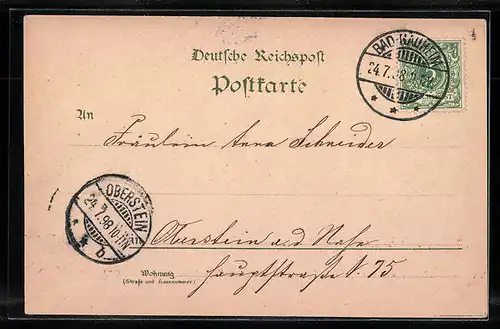 Deutsche Reichspost
Postkarte
BAD-NAUHEIM
24.7.98
An
Fräulein Anna Schneider
OBERSTEIN
24.7.98
b
Oberstein a.d. Nahe
Wohnung
(Straße und Hausnummer)
Hauptstraße N. 75